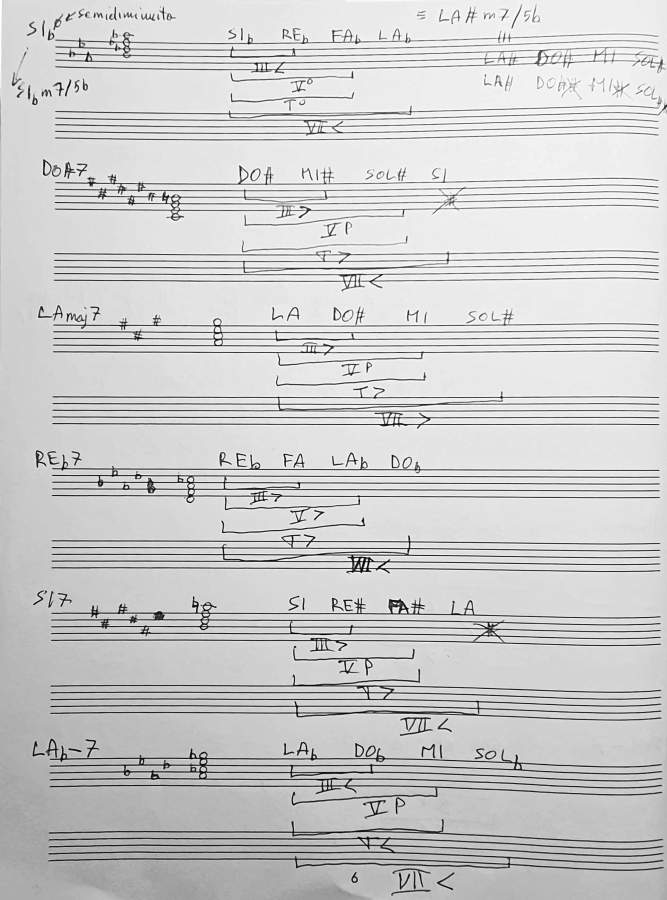 SIbø semidiminuita
SIbm7/5b
SIb REb FAb LAb
III<
V°
T°
VII<
= LA#m7/5b
LA# DO# MI SOL#
LA# MI
DO#7
DO# MI# SOL# SI
III>
V P
T>
VII<
LAmaj7
LA DO# MI SOL#
III>
V P
T>
VII>
REb7
REb FA LAb DOb
III>
V>
T>
VII<
SI7
SI RE# FA# LA
III>
V P
T>
VII<
LAb-7
LAb DOb MI SOLb
III<
V P
T<
6 VII<